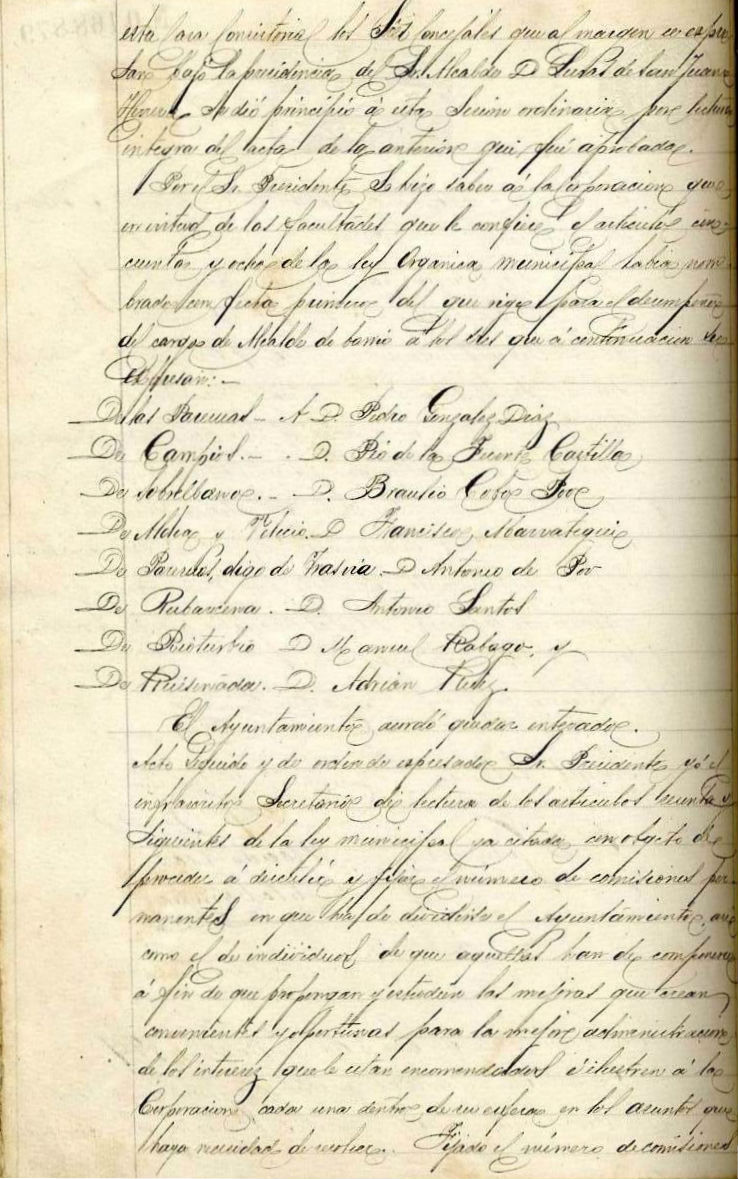 esta Casa Consistorial los Sres Concejales que al margen se expre
san bajo la presidencia del Sr. Alcalde D. Lucas de San Juan
se dió principio á esta sesion ordinaria por lectura
integra del acta de la anterior que fué aprobada.
Por el Sr. Presidente se hizo saber á la Corporacion que
en virtud de las facultades que le confiere el articulo cin-
cuenta y ocho de la ley Organica municipal habia nom
brado con fecha primero del que rige para el desempeño
del cargo de Alcalde de barrio á los Sres que á continuacion se
expresan:-
De las - A D. Pedro Gonzalez Diaz
De Campios. - . D. Pio de la Fuente Castillo
De Sobrellano. - D. Braulio Cobo Poo
De y Velecio. D Francisco
De digo de Trasvia. D Antonio de Poo
De Rubarcena. D. Antonio Santos
De Rioturbio D Manuel Rabago, y
De Ruiseñada. D. Adrian Ruiz
El Ayuntamiento acordó quedar enterado.
Acto seguido y de orden de expresado Sr. Presidente yó el
infrascrito Secretario di lectura de los articulos y
siguientes de la ley municipal ya citada con objeto de
proceder á discutir y fijar el número de comisiones per
manentes en que ha de dividirse el Ayuntamiento, asi
como el de individuos de que aquellas han de componerse
á fin de que propongan y estudien las mejoras que crean
convenientes y oportunas para la mejor administracion
de los intereses que le estan encomendados é ilustren á la
Corporacion cada una dentro de su esfera en los asuntos que
haya necesidad de resolver. Fijado el número de comisiones